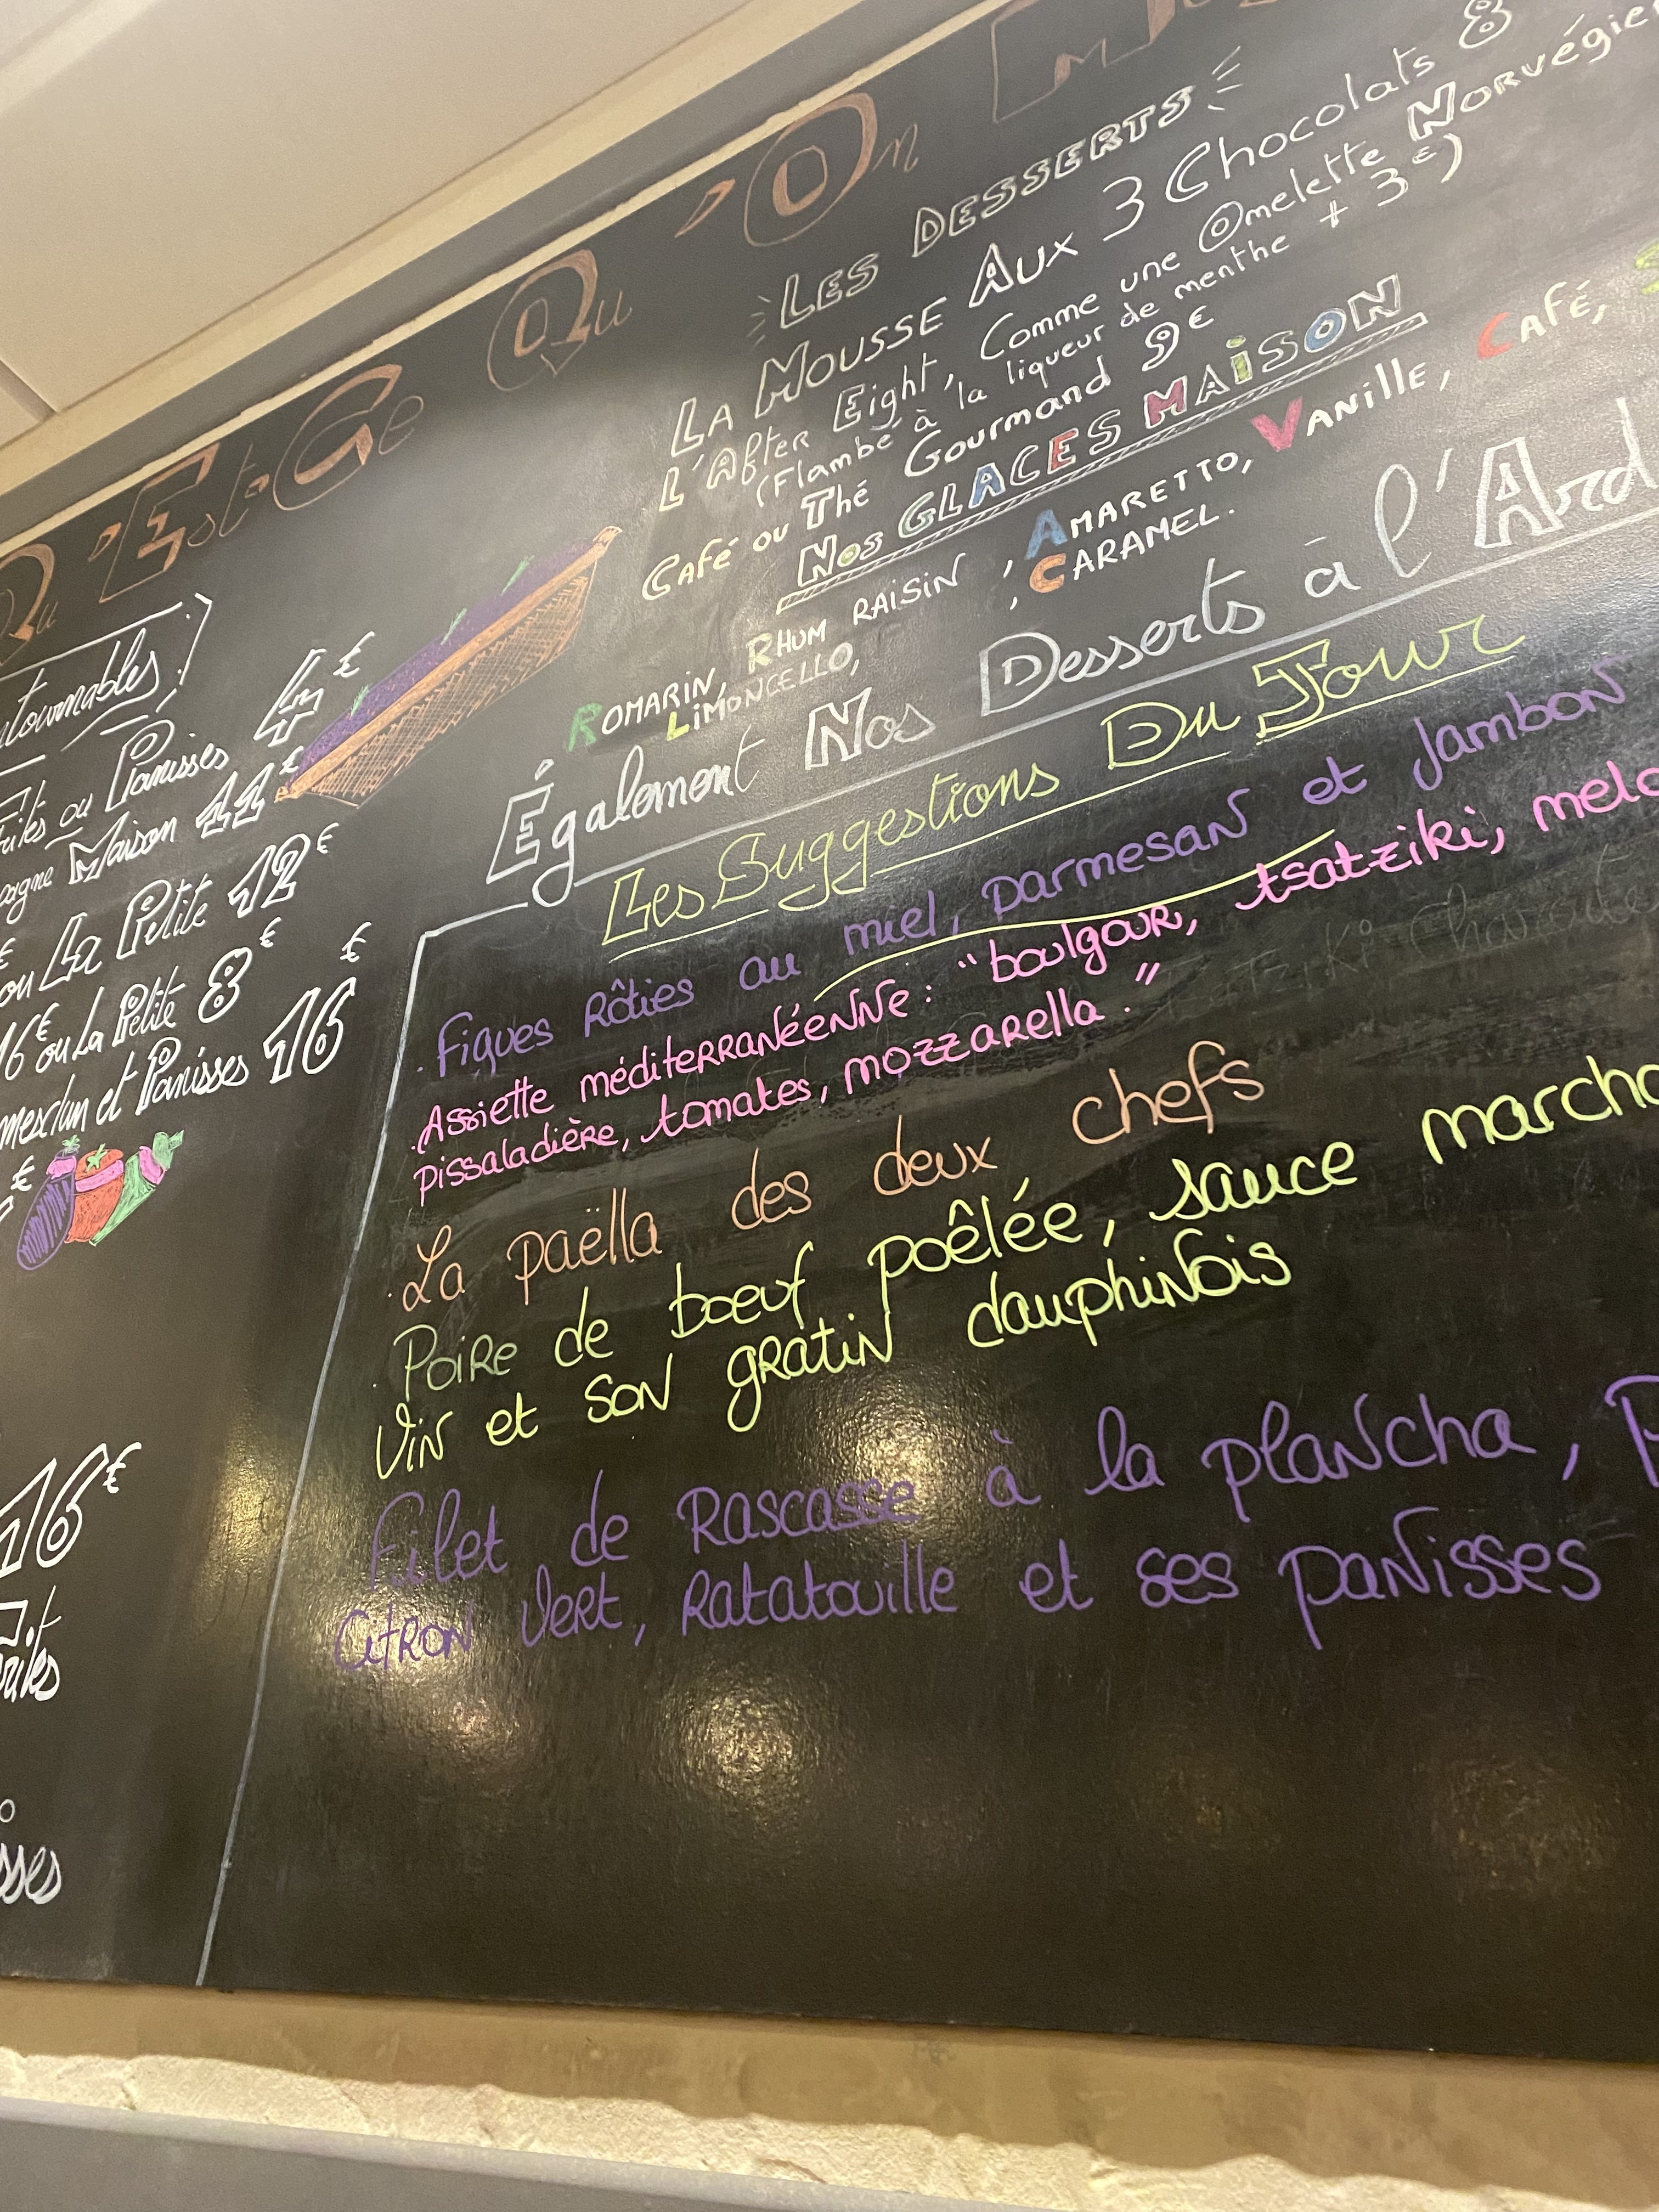 Qu'Est-Ce Qu'On M
ntournables !
Frites ou Panisses 4€
Maison 11€
ou La Petite 12€
16€ ou La Petite 8€
mesclun et Panisses 16€
€
16€
sses
LES DESSERTS
LA MOUSSE AUX 3 Chocolats 8
L'After Eight, Comme une Omelette Norvégie
(Flambé à la liqueur de menthe + 3€)
Café ou Thé Gourmand 9€
Nos GLACES MAISON
ROMARIN, RHUM RAISIN, AMARETTO, VANILLE, CAFÉ,
LIMONCELLO, , CARAMEL.
Également Nos Desserts à l'Ard
Les Suggestions Du Jour
. Figues Rôties au miel, parmesan et jambon
. Assiette méditerranéenne : "boulgour, tsatziki, melo
pissaladière, tomates, mozzarella."
. La paëlla des deux chefs
. Poire de boeuf poêlée, sauce marcha
Vin et son gratin dauphinois
Filet de Rascasse à la plancha,
Citron Vert, Ratatouille et ses panisses